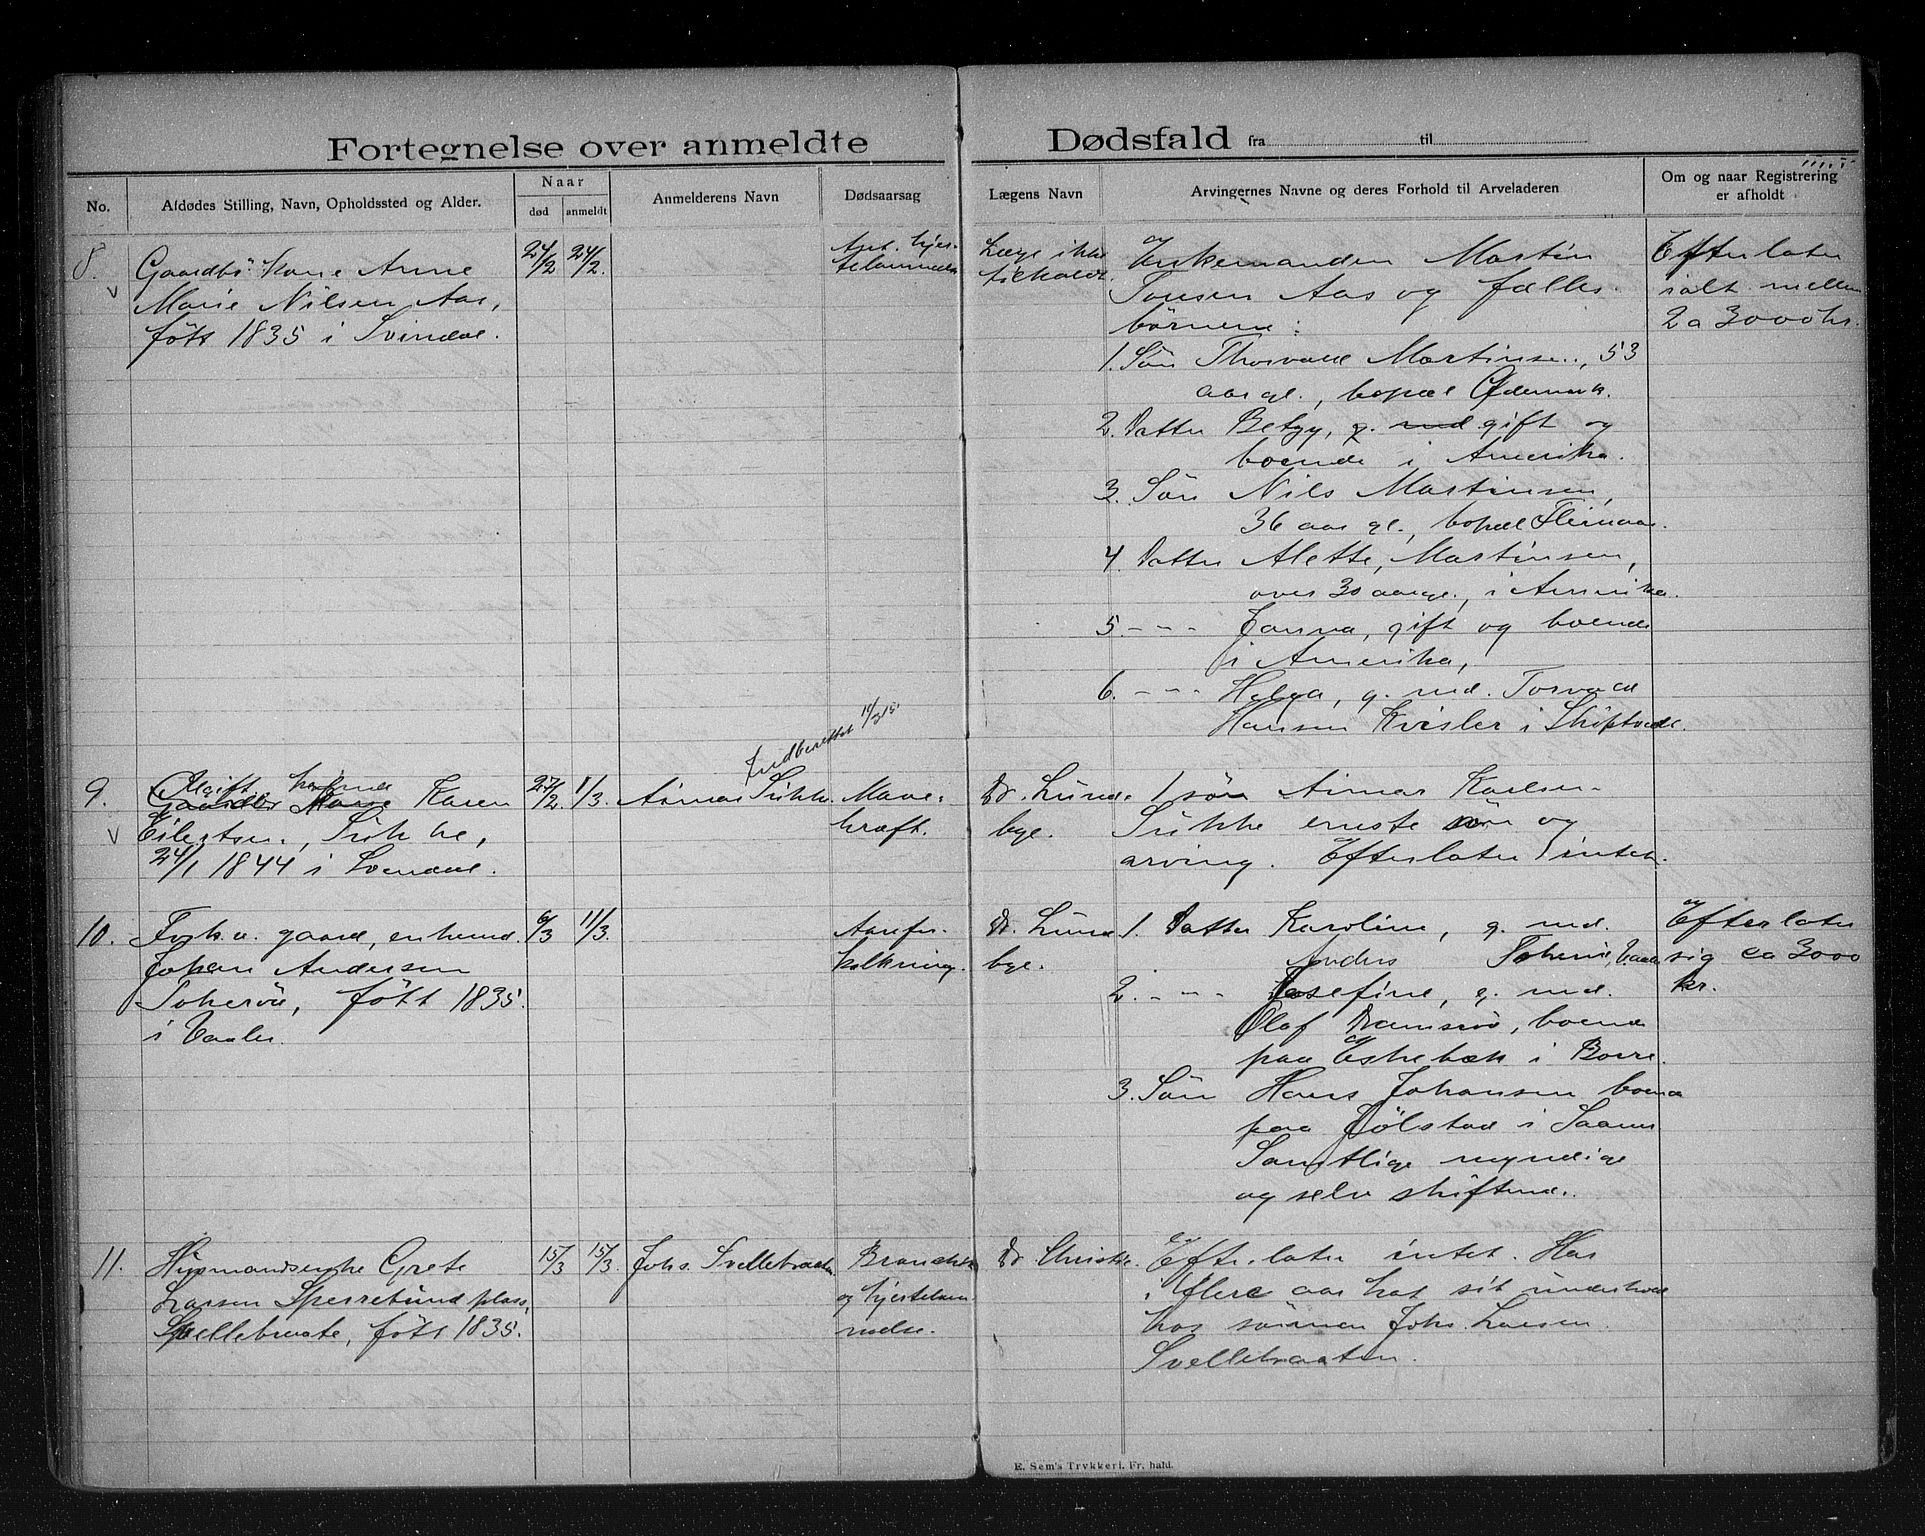 Fortegnelse over anmeldte Dødsfald fra til
No.
Afdødes Stilling, Navn, Opholdssted og Alder.
Naar
død anmeldt
Anmelderens Navn
Dødsaarsag
Lægens Navn
Arvingernes Navne og deres Forhold til Arveladeren
Om og naar Registrering
er afholdt
8.
Gaardbr. Kone Anne
Marie Nilsen Aas,
født 1835 i Svindal.
24/2 24/2.
Ant. hjer-
telammelse
Læge ikke
tilkaldt.
Enkemanden Martin
Jonsen Aas og fælles-
børnene:
1. Søn Thorvald Martinsen, 53
aar gl., bopæl Ødemark.
2. Datter Betzy, g. med gift og
boende i Amerika.
3. Søn Nils Martinsen,
36 aar gl., bopæl
4. Datter Alette, Martinsen,
over 30 aar gl., i Amerika.
5. - - - Janna, gift og boende
i Amerika,
6. - - - Helga, g. med. Torvald
Hansen Kvisler i Skiptvedt.
Efterlater
ialt mellem
2 a 3000 kr.
Indberettet 11/3 15
9.
Ugift
Gaardbr Karen
Eilertsen, Sukke,
24/1 1844 i Svendal.
27/2. 1/3.
Aimar Sukke.
Mave-
kræft.
Dr. Lund-
bye.
1 søn Aimar Karlsen
Sukke eneste søn og
arving. Efterlater intet.
10.
Fork. v. gaard, enkemd.
Johan Andersen
Tokerøe, født 1835.
i Vaaler.
6/3 11/3.
Aarefor-
kalkning.
Dr. Lund
bye.
1. Datter Karoline, g. med.
Anders Vaaler
2. - - - Josefine, g. med.
Olaf Ramsrøe, boende
paa Eskebæk i Borre.
3. Søn Hans Johansen boende
paa Jølstad i Saaner
Samtlige myndige
og selv skiftende.
Efterlater
sig ca 3000
kr.
11.
Husmandsenke Grete
Larsen Sperrebund plass,
Svellebraate, født 1835.
15/3 15/3.
Johs. Svellebraaten
Bronchit
og hjertelam-
melse.
Dr. Christie.
Efterlater intet. Har
i flere aar hat sit underhold
hos sønnen Johs. Larsen
Svellebraaten.
E. Sem's Trykkeri, Fr. hald.